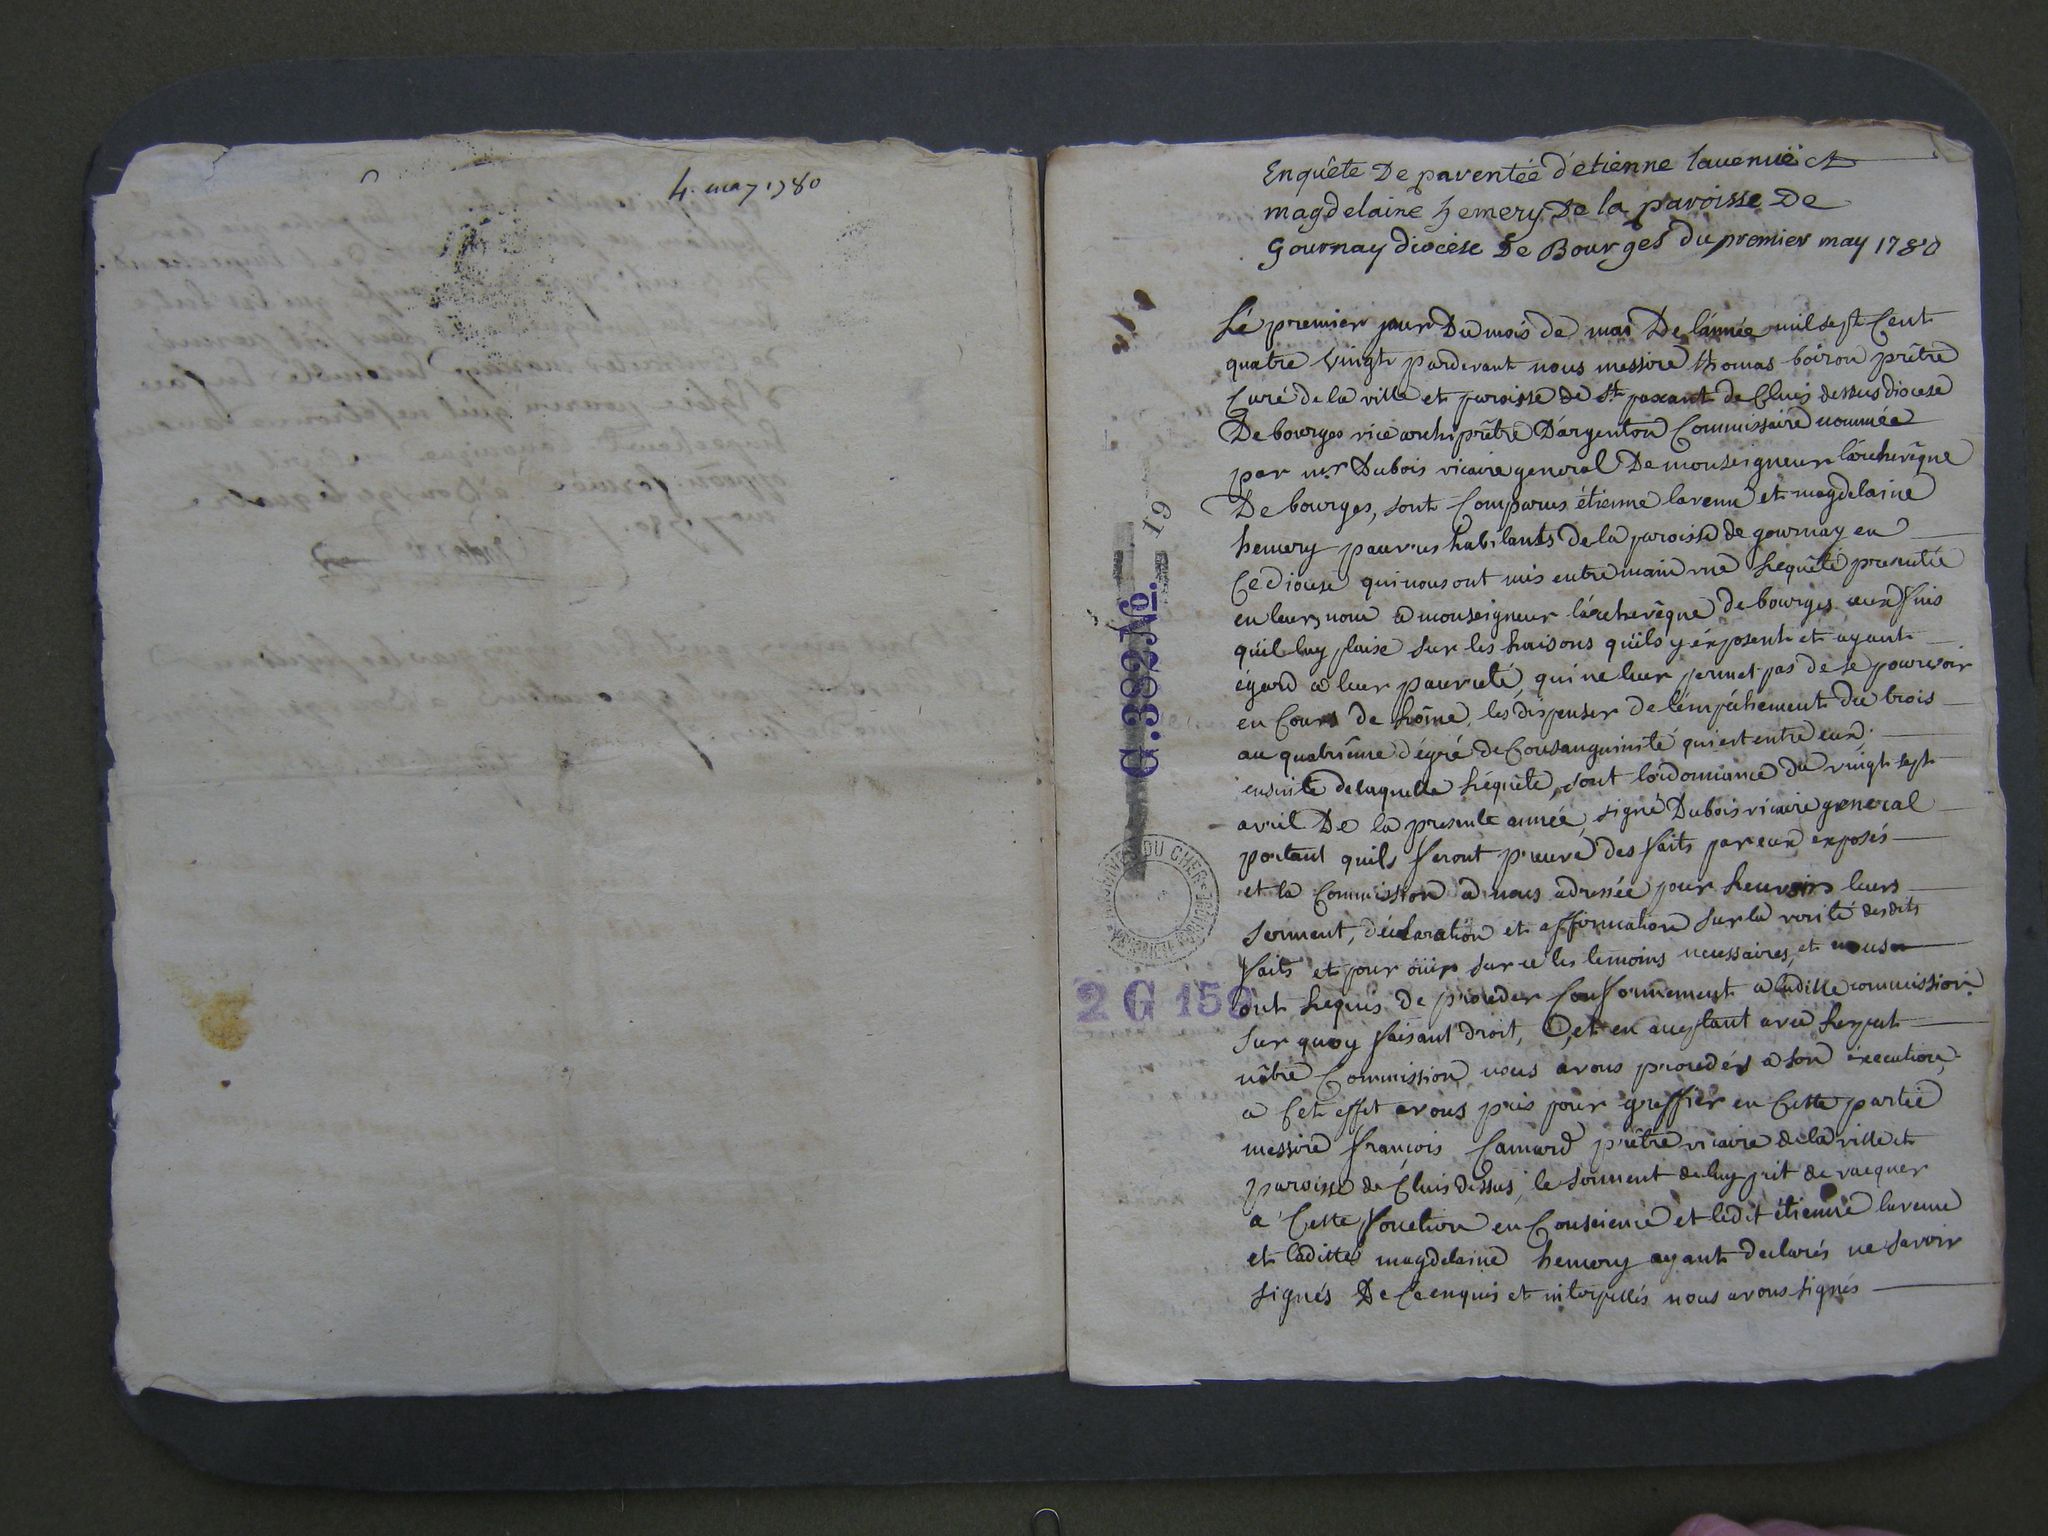 4. may 1780
Enquête De parentée d'etienne lavenüe et
magdelaine hemery De la paroisse De
Gournay diocèse De Bourges du premier may 1780
Le premier jour Du mois de mai De l'année mil sept Cent
quatre Vingt pardevant nous messire thomas boiron prêtre
Curé de la ville et paroisse de St paxant de Cluis dessus diocese
De bourges vice archiprêtre D'argenton Commissaire nommée
par mr. Dubois vicaire general De monseigneur l'archevêque
De bourges, sont Comparus étienne lavenu et magdelaine
hemery pauvres habitants de la paroisse de gournay en
Ce diocese qui nous ont mis entre main une Requête presentée
en leurs nom a monseigneur l'archevêque de bourges aux fins
qu'il luy plaise sur les Raisons qu'ils y éxposent et ayant
égard a leur pauvreté, qui ne leur permet pas de se pourvoir
en Cours de Rôme, les dispenser de l'empêchement du trois
au quatrième dégré de Consanguinité qui est entre eux,
ensuite de laquelle Réquête, sont l'ordonnance du vingt sept
avril De la presente année, signé Dubois vicaire general
portant quils feront preuve des faits par eux exposés
et la Commission a nous adressée pour Recevoir leurs
serment, déclaration et affirmation sur la verité desdits
faits et pour oüir sur ce les temoins necessaires, et nous
ont Requis de proceder Conformement a laditte commission.
Sur quoy faisant droit, et en acceptant avec Respect
nôtre Commission nous avons procedés a son éxecution,
a Cet effet avons pris pour greffier en Cette partie
messire françois Camard prêtre vicaire de la ville et
paroisse de Cluis dessus, le serment de luy prit de vacquer
a Cette fonction en Conscience et ledit étienne lavenue
et laditte magdelaine hemery ayant declarés ne savoir
signés De Ce enquis et interpellés nous avons signés
G. 382 No.
19
ARCHIVES DU CHER
2 G 159